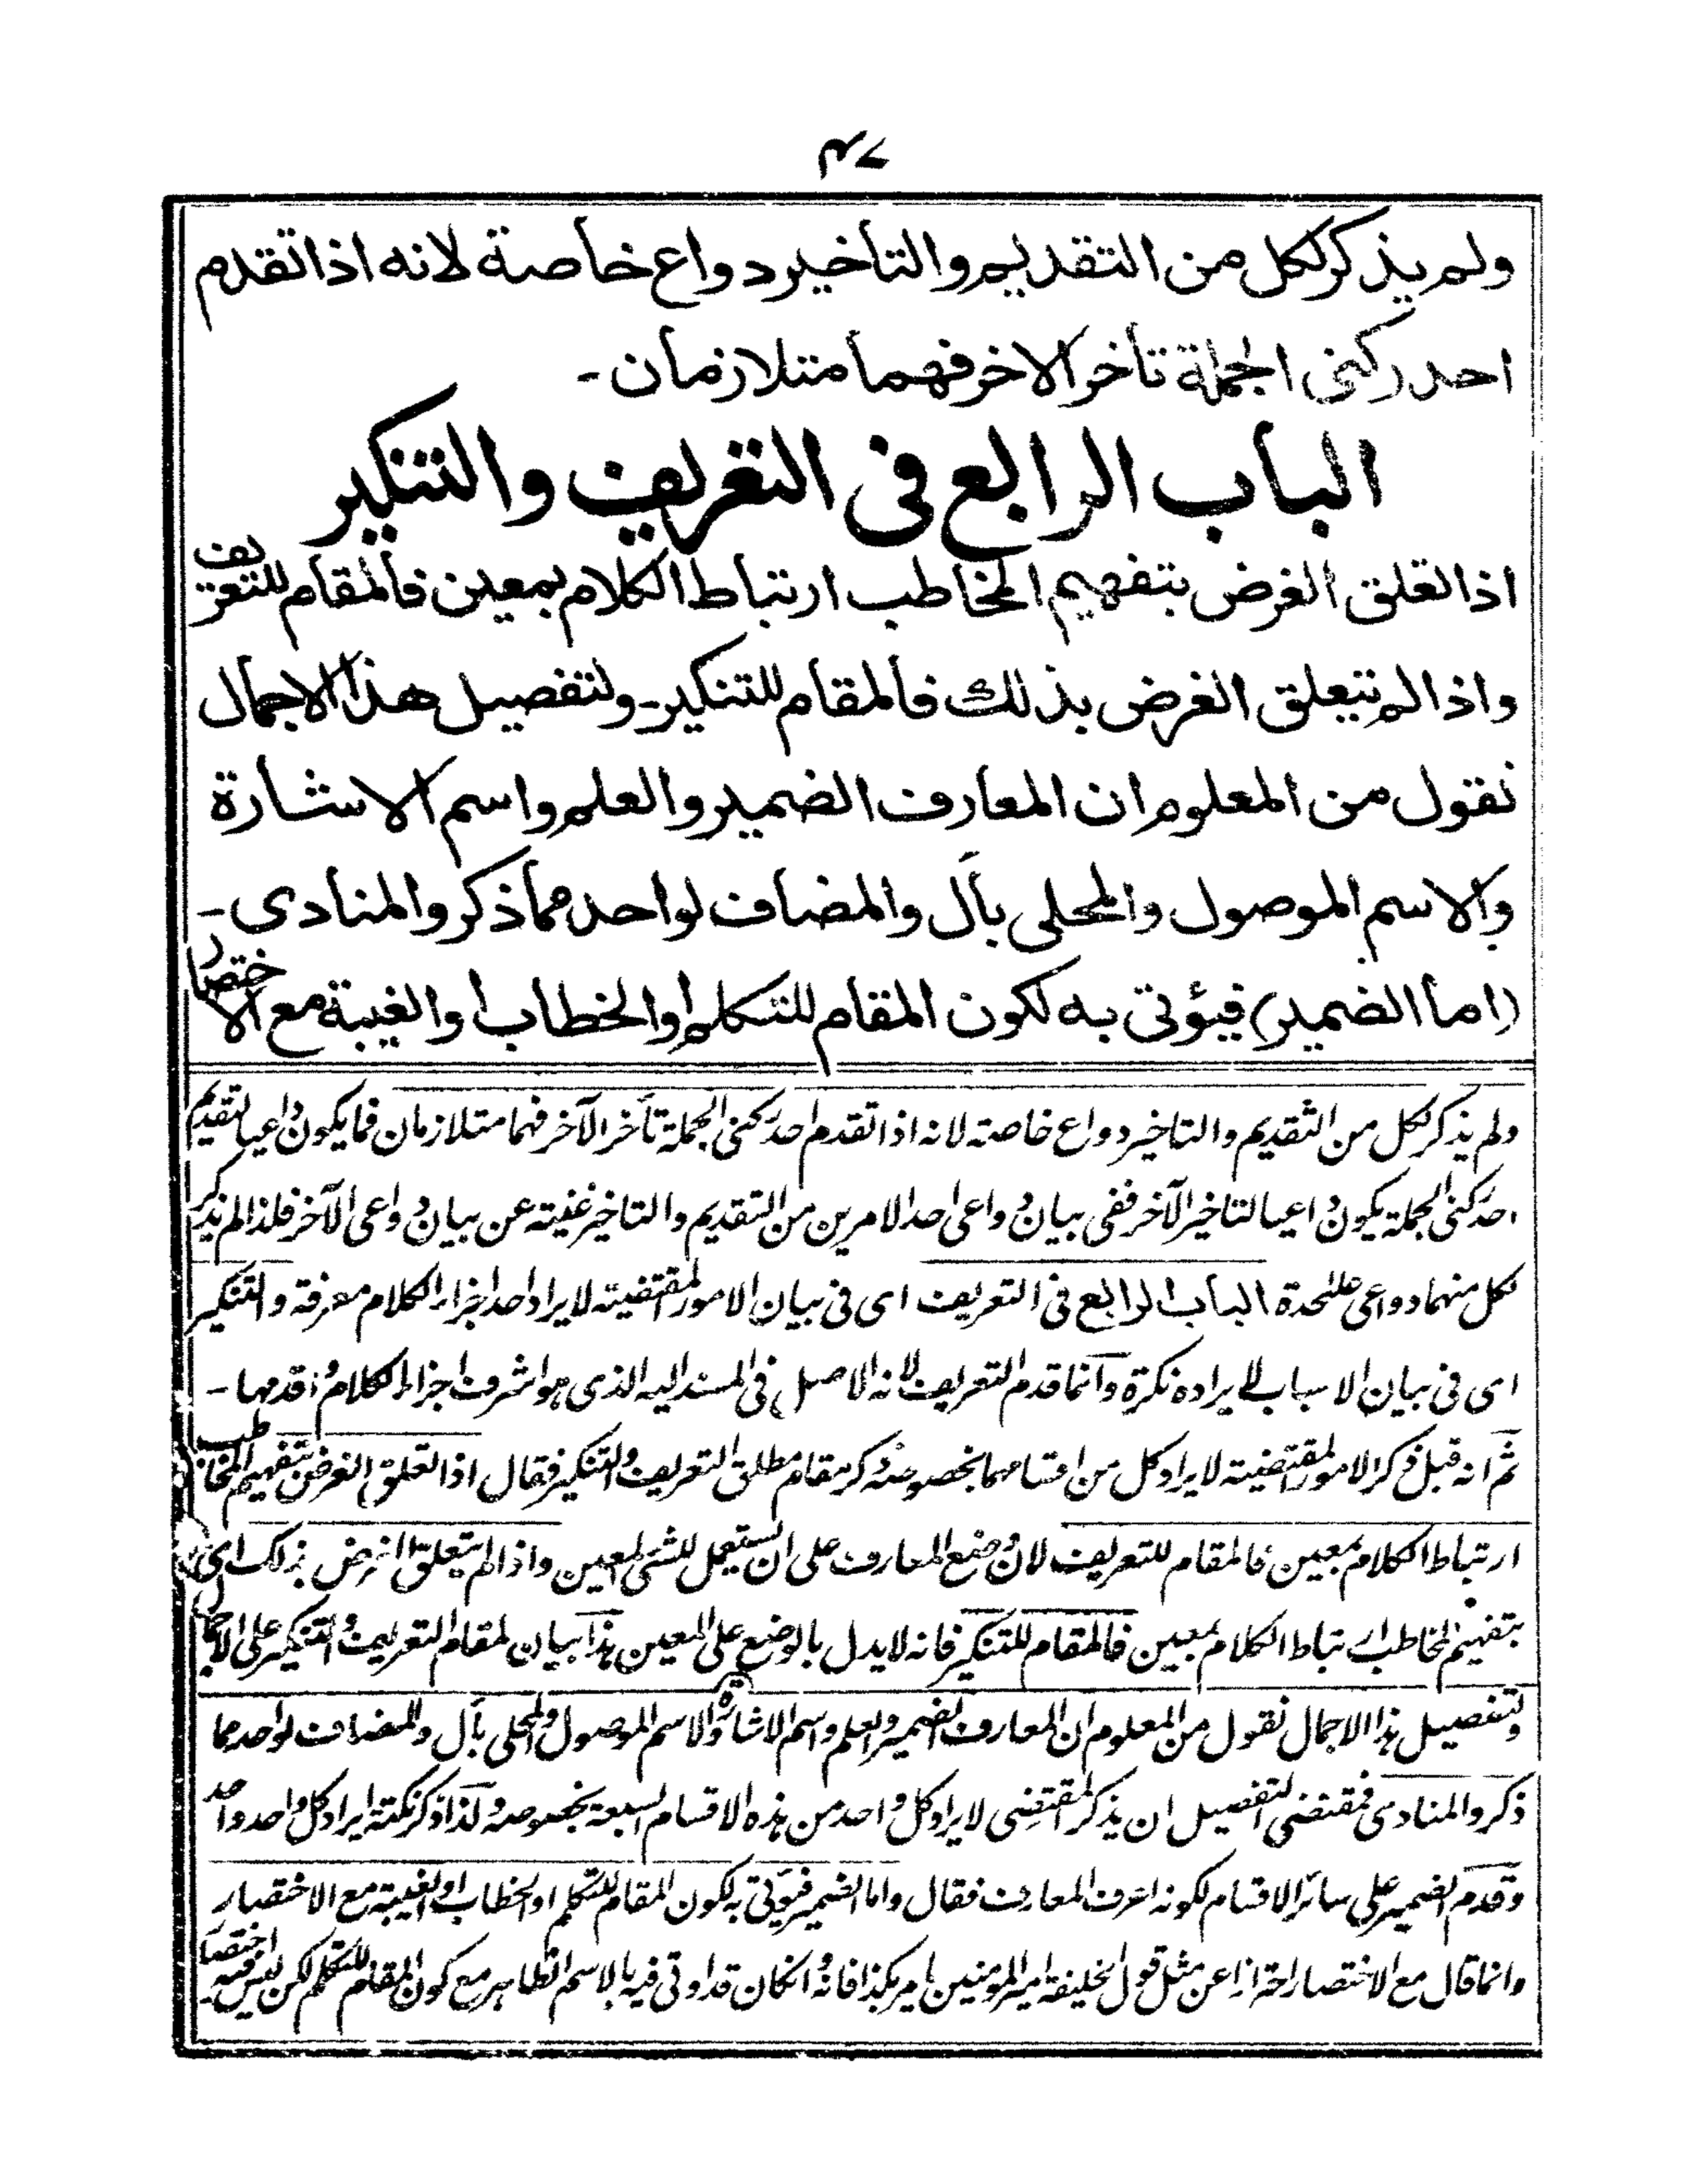 ٤٧
ولم يذكر لكل من التقديم والتأخير دواع خاصة لانه اذا تقدم
احد ركنى الجملة تأخر الاخر فهما متلازمان ـ
الباب الرابع فى التعريف والتنكير
اذا تعلق الغرض بتفهيم المخاطب ارتباط الكلام بمعين فالمقام للتعريف
واذا لم يتعلق الغرض بذلك فالمقام للتنكير ـ ولتفصيل هذا الاجمال
نقول من المعلوم ان المعارف الضمير والعلم واسم الاشارة
والاسم الموصول والمحلى بأل والمضاف لواحد مما ذكر والمنادى ـ
(اما الضمير) فيؤتى به لكون المقام للتكلم او الخطاب او الغيبة مع الاختصار
ولم يذكر لكل من التقديم والتاخير دواع خاصة لانه اذا تقدم احد ركنى الجملة تأخر الآخر فهما متلازمان فما يكون داعيا لتقديم
احد ركنى الجملة يكون داعيا لتاخير الآخر ففى بيان دواعى احد الامرين من التقديم والتاخير غنية عن بيان دواعى الآخر فلذا لم يذكر
لكل منهما دواعى علٰحدة الباب الرابع فى التعريف اى فى بيان الامور المقتضية لايراد احد اجزاء الكلام معرفة والتنكير
اى فى بيان الاسباب لايراده نكرة وانما قدم التعريف لانه الاصل فى المسند اليه الذى هو اشرف اجزاء الكلام واقدمها ـ
ثم انه قبل ذكر الامور المقتضية لايراد كل من اقسامهما بخصوصه ذكر مقام مطلق التعريف والتنكير فقال اذا تعلق الغرض بتفهيم المخاطب
ارتباط الكلام بمعين فالمقام للتعريف لان وضع المعارف على ان يستعمل للشئ المعين واذا لم يتعلق الغرض بذلك اى
بتفهيم المخاطب ارتباط الكلام بمعين فالمقام للتنكير فانه لا يدل بالوضع على المعين هذا بيان لمقام التعريف والتنكير على الاجمال
ولتفصيل هذا الاجمال نقول من المعلوم ان المعارف الضمير والعلم واسم الاشارة والاسم الموصول والمحلى بأل والمضاف لواحد مما
ذكر والمنادى فمقتضى التفصيل ان يذكر المقتضى لايراد كل واحد من هذه الاقسام السبعة بخصوصه ولذا ذكر نكتة ايراد كل واحد واحد
وقدم الضمير على سائر الاقسام لكونه اعرف المعارف فقال واما الضمير فيؤتى به لكون المقام للتكلم او الخطاب او الغيبة مع الاختصار
وانما قال مع الاختصار احترازا عن مثل قول الخليفة امير المؤمنين يامر بكذا فانه وان كان قد اوتى فيه بالاسم الظاهر مع كون المقام للتكلم لكن ليس فيه اختصار